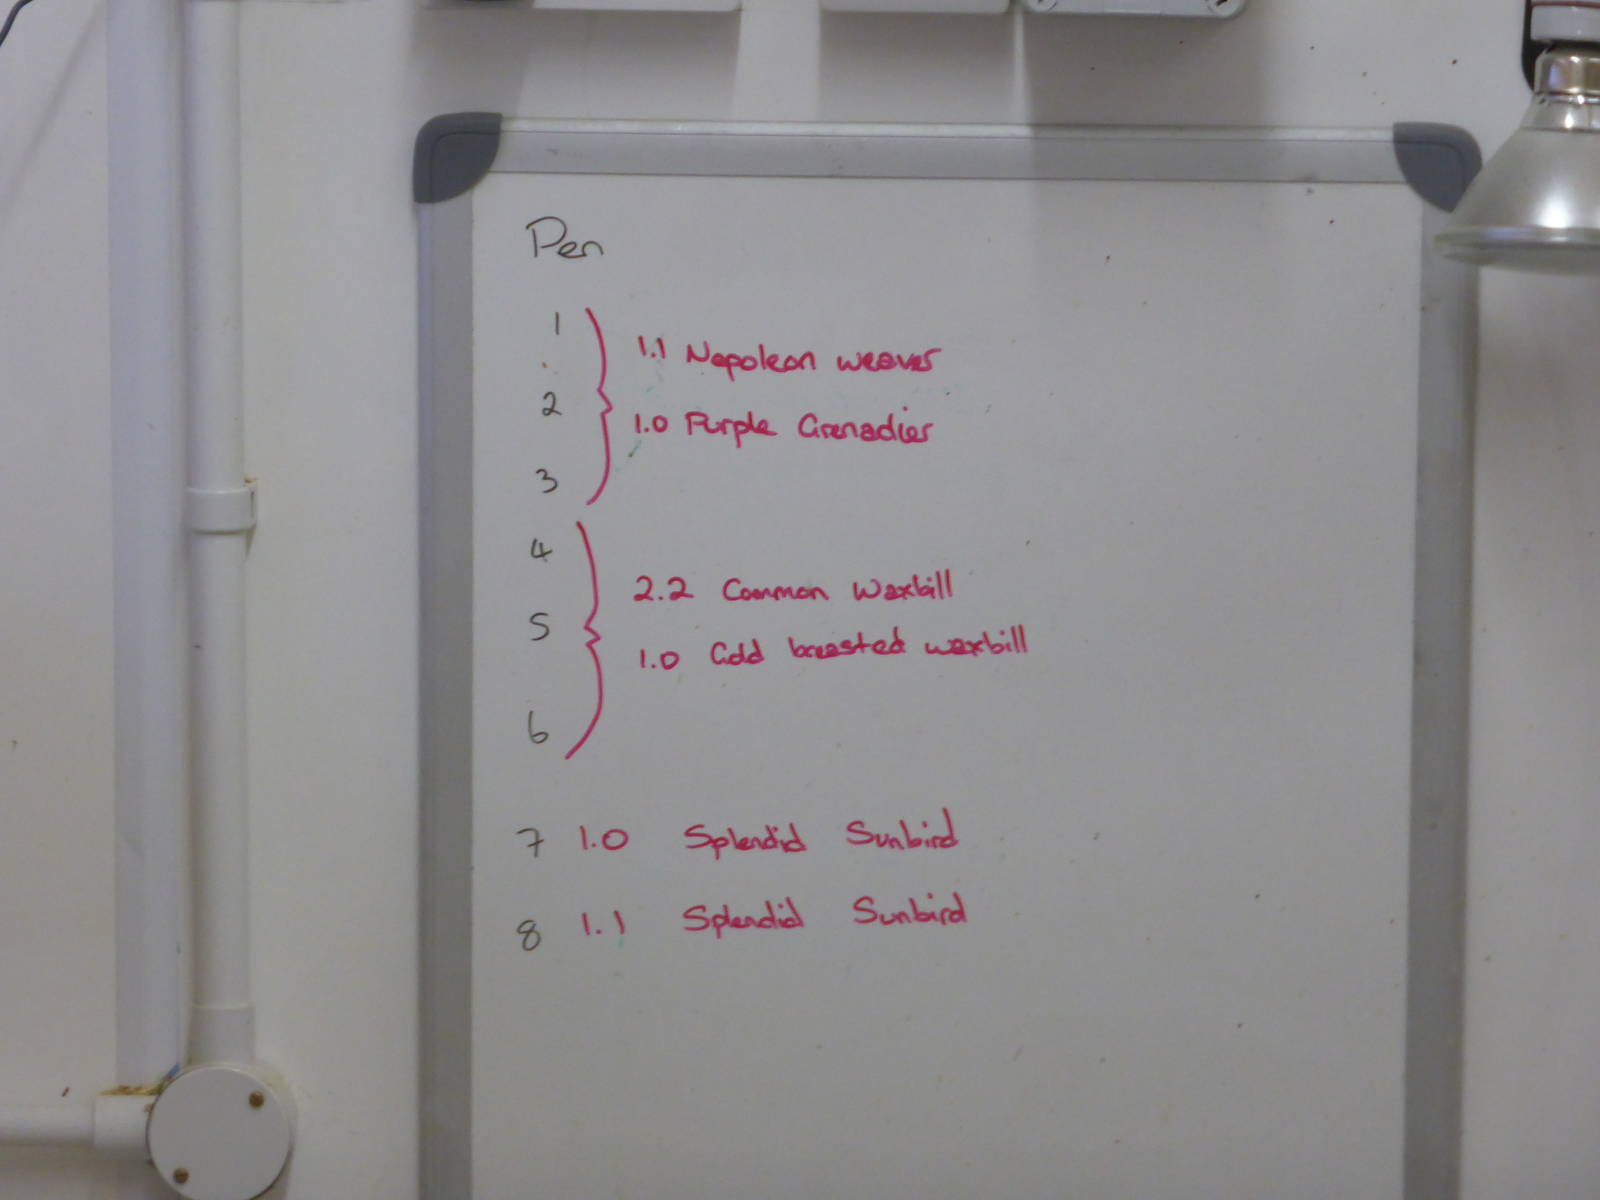 Pen
1
1.1 Napoleon weaver
2
1.0 Purple Grenadier
3
4
2.2 Common Waxbill
5
1.0 Gold breasted waxbill
6
7 1.0 Splendid Sunbird
8 1.1 Splendid Sunbird